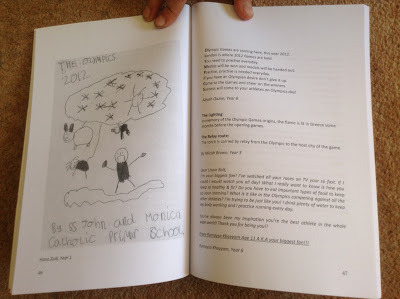 THE OLYMPICS
2012
By SS John and Monica
Catholic Primary School
Fiona Dob, Year 1
46
Olympic Games are coming here, this year 2012.
London is where 2012 Games are held
You need to practise everyday
Medals will be won and medals will be handed out.
Practise, practise is needed everyday.
If you have an Olympics dream don't give it up.
Come to the Games and cheer on the winners
Success will come to your athletes on Olympics day!
Year 6
The Lighting:
In memory of the Olympic Games origins, the flame is lit in Greece some
months before the opening games.
The Relay route:
The torch is carried by relay from the Olympia to the host city of the
games.
By Micah Brown, Year 3
Dear Usain Bolt,
I'm your biggest fan! I've watched all your races on TV your so fast. If I
could I would watch you all day! What I really want to know is how you
keep so healthy & fit? Do you have to eat important types of food to keep
up your stamina? What it is like in the Olympics competing against all the
other athletes? I'm trying to be just like you! I drink plenty of water to keep
my body working and I practise running every day.
You've always been my inspiration you're the best athlete in the whole
wide world! Thank you for being you!!!
From Kamara Khayyam Age 11 A.K.A your biggest fan!!!
Kamara Khayyam, Year 6
47